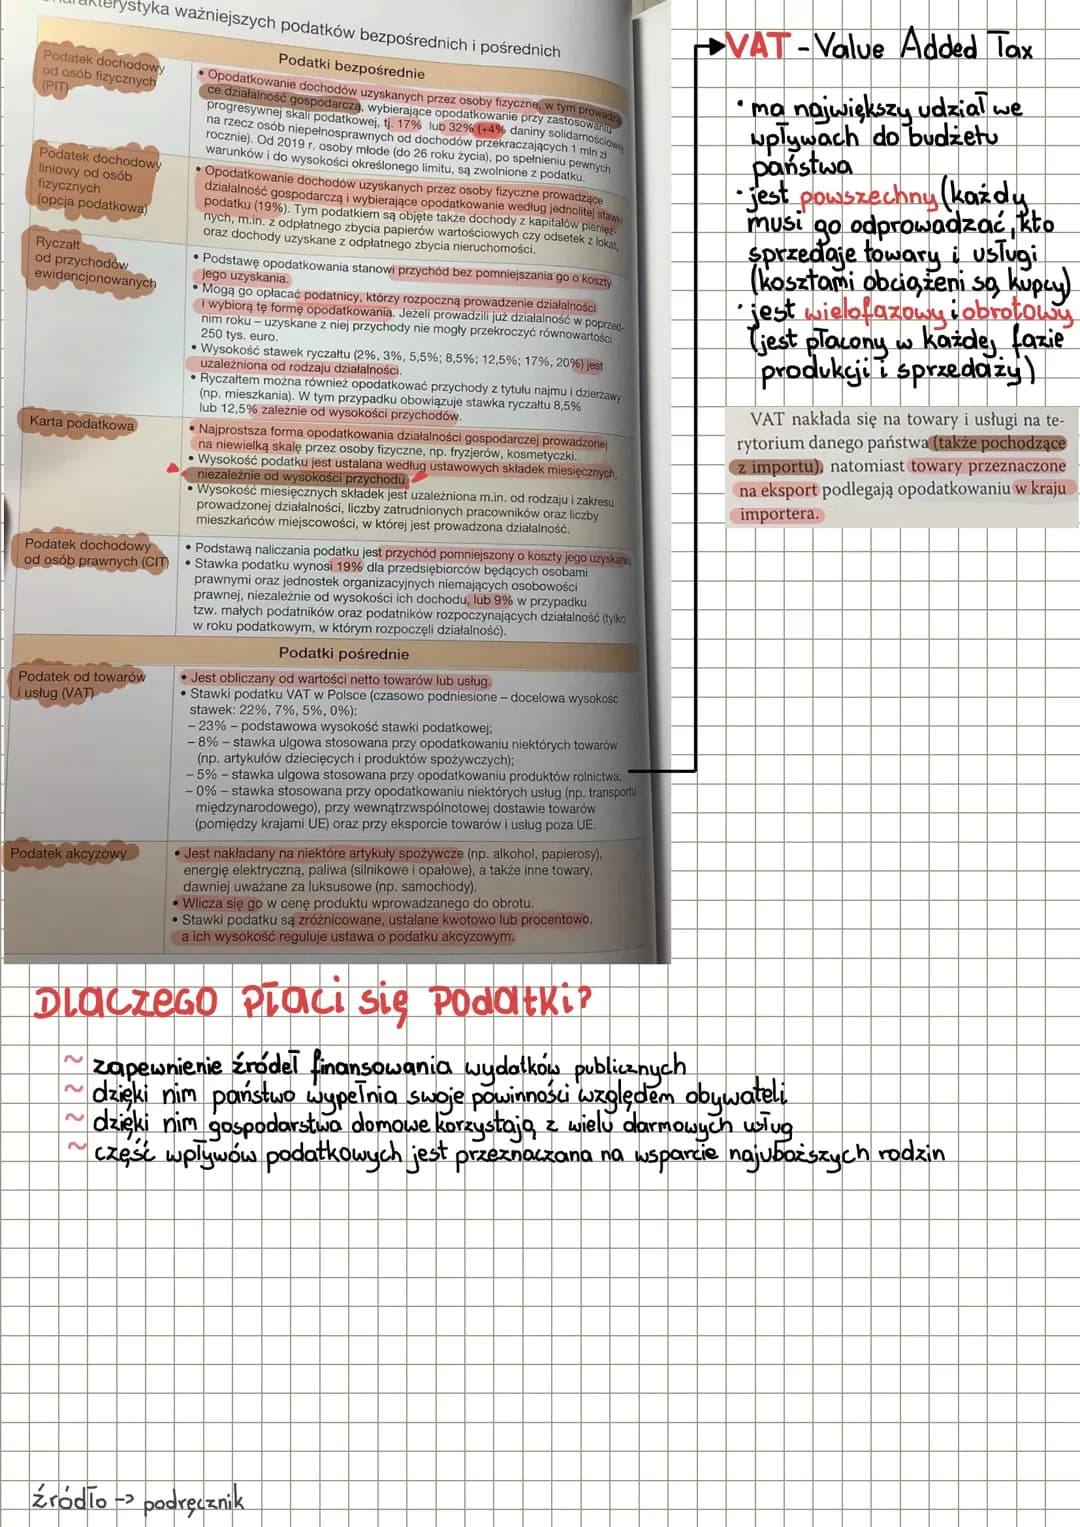 charakterystyka ważniejszych podatków bezpośrednich i pośrednich
Podatki bezpośrednie
Podatek dochodowy
od osób fizycznych
(PIT)
• Opodatkowanie dochodów uzyskanych przez osoby fizyczne, w tym prowadzą
ce działalność gospodarczą, wybierające opodatkowanie przy zastosowaniu
progresywnej skali podatkowej, tj. 17% lub 32% (+4% daniny solidarnościowej
na rzecz osób niepełnosprawnych od dochodów przekraczających 1 mln zł
rocznie). Od 2019 r. osoby młode (do 26 roku życia), po spełnieniu pewnych
warunków i do wysokości określonego limitu, są zwolnione z podatku.
Podatek dochodowy
liniowy od osób
fizycznych
(opcja podatkowa)
• Opodatkowanie dochodów uzyskanych przez osoby fizyczne prowadzące
działalność gospodarczą i wybierające opodatkowanie według jednolitej stawki
podatku (19%). Tym podatkiem są objęte także dochody z kapitałów pienięż-
nych, m.in. z odpłatnego zbycia papierów wartościowych czy odsetek z lokat,
oraz dochody uzyskane z odpłatnego zbycia nieruchomości.
Ryczałt
od przychodów
ewidencjonowanych
• Podstawę opodatkowania stanowi przychód bez pomniejszania go o koszty
jego uzyskania.
• Mogą go opłacać podatnicy, którzy rozpoczną prowadzenie działalności
i wybiorą tę formę opodatkowania. Jeżeli prowadzili już działalność w poprzed-
nim roku – uzyskane z niej przychody nie mogły przekroczyć równowartości
250 tys. euro.
• Wysokość stawek ryczałtu (2%, 3%, 5,5%; 8,5%; 12,5%; 17%, 20%) jest
uzależniona od rodzaju działalności.
• Ryczałtem można również opodatkować przychody z tytułu najmu i dzierżawy
(np. mieszkania). W tym przypadku obowiązuje stawka ryczałtu 8,5%
lub 12,5% zależnie od wysokości przychodów.
Karta podatkowa
• Najprostsza forma opodatkowania działalności gospodarczej prowadzonej
na niewielką skalę przez osoby fizyczne, np. fryzjerów, kosmetyczki.
• Wysokość podatku jest ustalana według ustawowych składek miesięcznych,
niezależnie od wysokości przychodu.
• Wysokość miesięcznych składek jest uzależniona m.in. od rodzaju i zakresu
prowadzonej działalności, liczby zatrudnionych pracowników oraz liczby
mieszkańców miejscowości, w której jest prowadzona działalność.
Podatek dochodowy
od osób prawnych (CIT)
• Podstawą naliczania podatku jest przychód pomniejszony o koszty jego uzyskania.
• Stawka podatku wynosi 19% dla przedsiębiorców będących osobami
prawnymi oraz jednostek organizacyjnych niemających osobowości
prawnej, niezależnie od wysokości ich dochodu, lub 9% w przypadku
tzw. małych podatników oraz podatników rozpoczynających działalność (tylko
w roku podatkowym, w którym rozpoczęli działalność).
Podatki pośrednie
Podatek od towarów
i usług (VAT)
• Jest obliczany od wartości netto towarów lub usług.
• Stawki podatku VAT w Polsce (czasowo podniesione – docelowa wysokość
stawek: 22%, 7%, 5%, 0%):
– 23% – podstawowa wysokość stawki podatkowej;
– 8% – stawka ulgowa stosowana przy opodatkowaniu niektórych towarów
(np. artykułów dziecięcych i produktów spożywczych);
– 5% – stawka ulgowa stosowana przy opodatkowaniu produktów rolnictwa;
– 0% – stawka stosowana przy opodatkowaniu niektórych usług (np. transportu
międzynarodowego), przy wewnątrzwspólnotowej dostawie towarów
(pomiędzy krajami UE) oraz przy eksporcie towarów i usług poza UE.
Podatek akcyzowy
• Jest nakładany na niektóre artykuły spożywcze (np. alkohol, papierosy),
energię elektryczną, paliwa (silnikowe i opałowe), a także inne towary,
dawniej uważane za luksusowe (np. samochody).
• Wlicza się go w cenę produktu wprowadzanego do obrotu.
• Stawki podatku są zróżnicowane, ustalane kwotowo lub procentowo,
a ich wysokość reguluje ustawa o podatku akcyzowym.
VAT - Value Added Tax
• ma największy udział we
wpływach do budżetu
państwa
• jest powszechny (każdy
musi go odprowadzać, kto
sprzedaje towary i usługi
(kosztami obciążeni są kupcy)
• jest wielofazowy i obrotowy
(jest płacony w każdej fazie
produkcji i sprzedaży)
VAT nakłada się na towary i usługi na te-
rytorium danego państwa (także pochodzące
z importu), natomiast towary przeznaczone
na eksport podlegają opodatkowaniu w kraju
importera.
Dlaczego płaci się podatki?
~ zapewnienie źródeł finansowania wydatków publicznych
~ dzięki nim państwo wypełnia swoje powinności względem obywateli
~ dzięki nim gospodarstwa domowe korzystają z wielu darmowych usług
~ część wpływów podatkowych jest przeznaczana na wsparcie najuboższych rodzin
źródło -> podręcznik